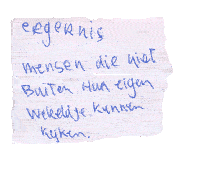 ergernis
mensen die niet
Buiten Hun eigen
Wereldje kunnen
kijken.